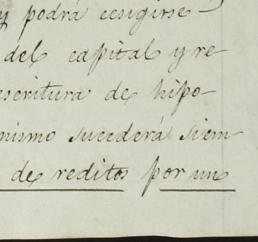 y podrá ecsigirse
del capital y re-
escritura de hipo-
mismo sucederá siem-
de reditos por un